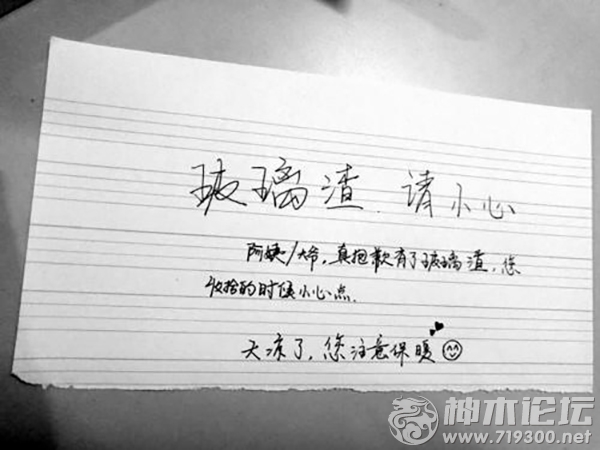 玻璃渣.请小心
阿姨/大爷,真抱歉有了玻璃渣,您
收拾的时候小心点.
天凉了,您注意保暖
神木论坛
www.719300.net